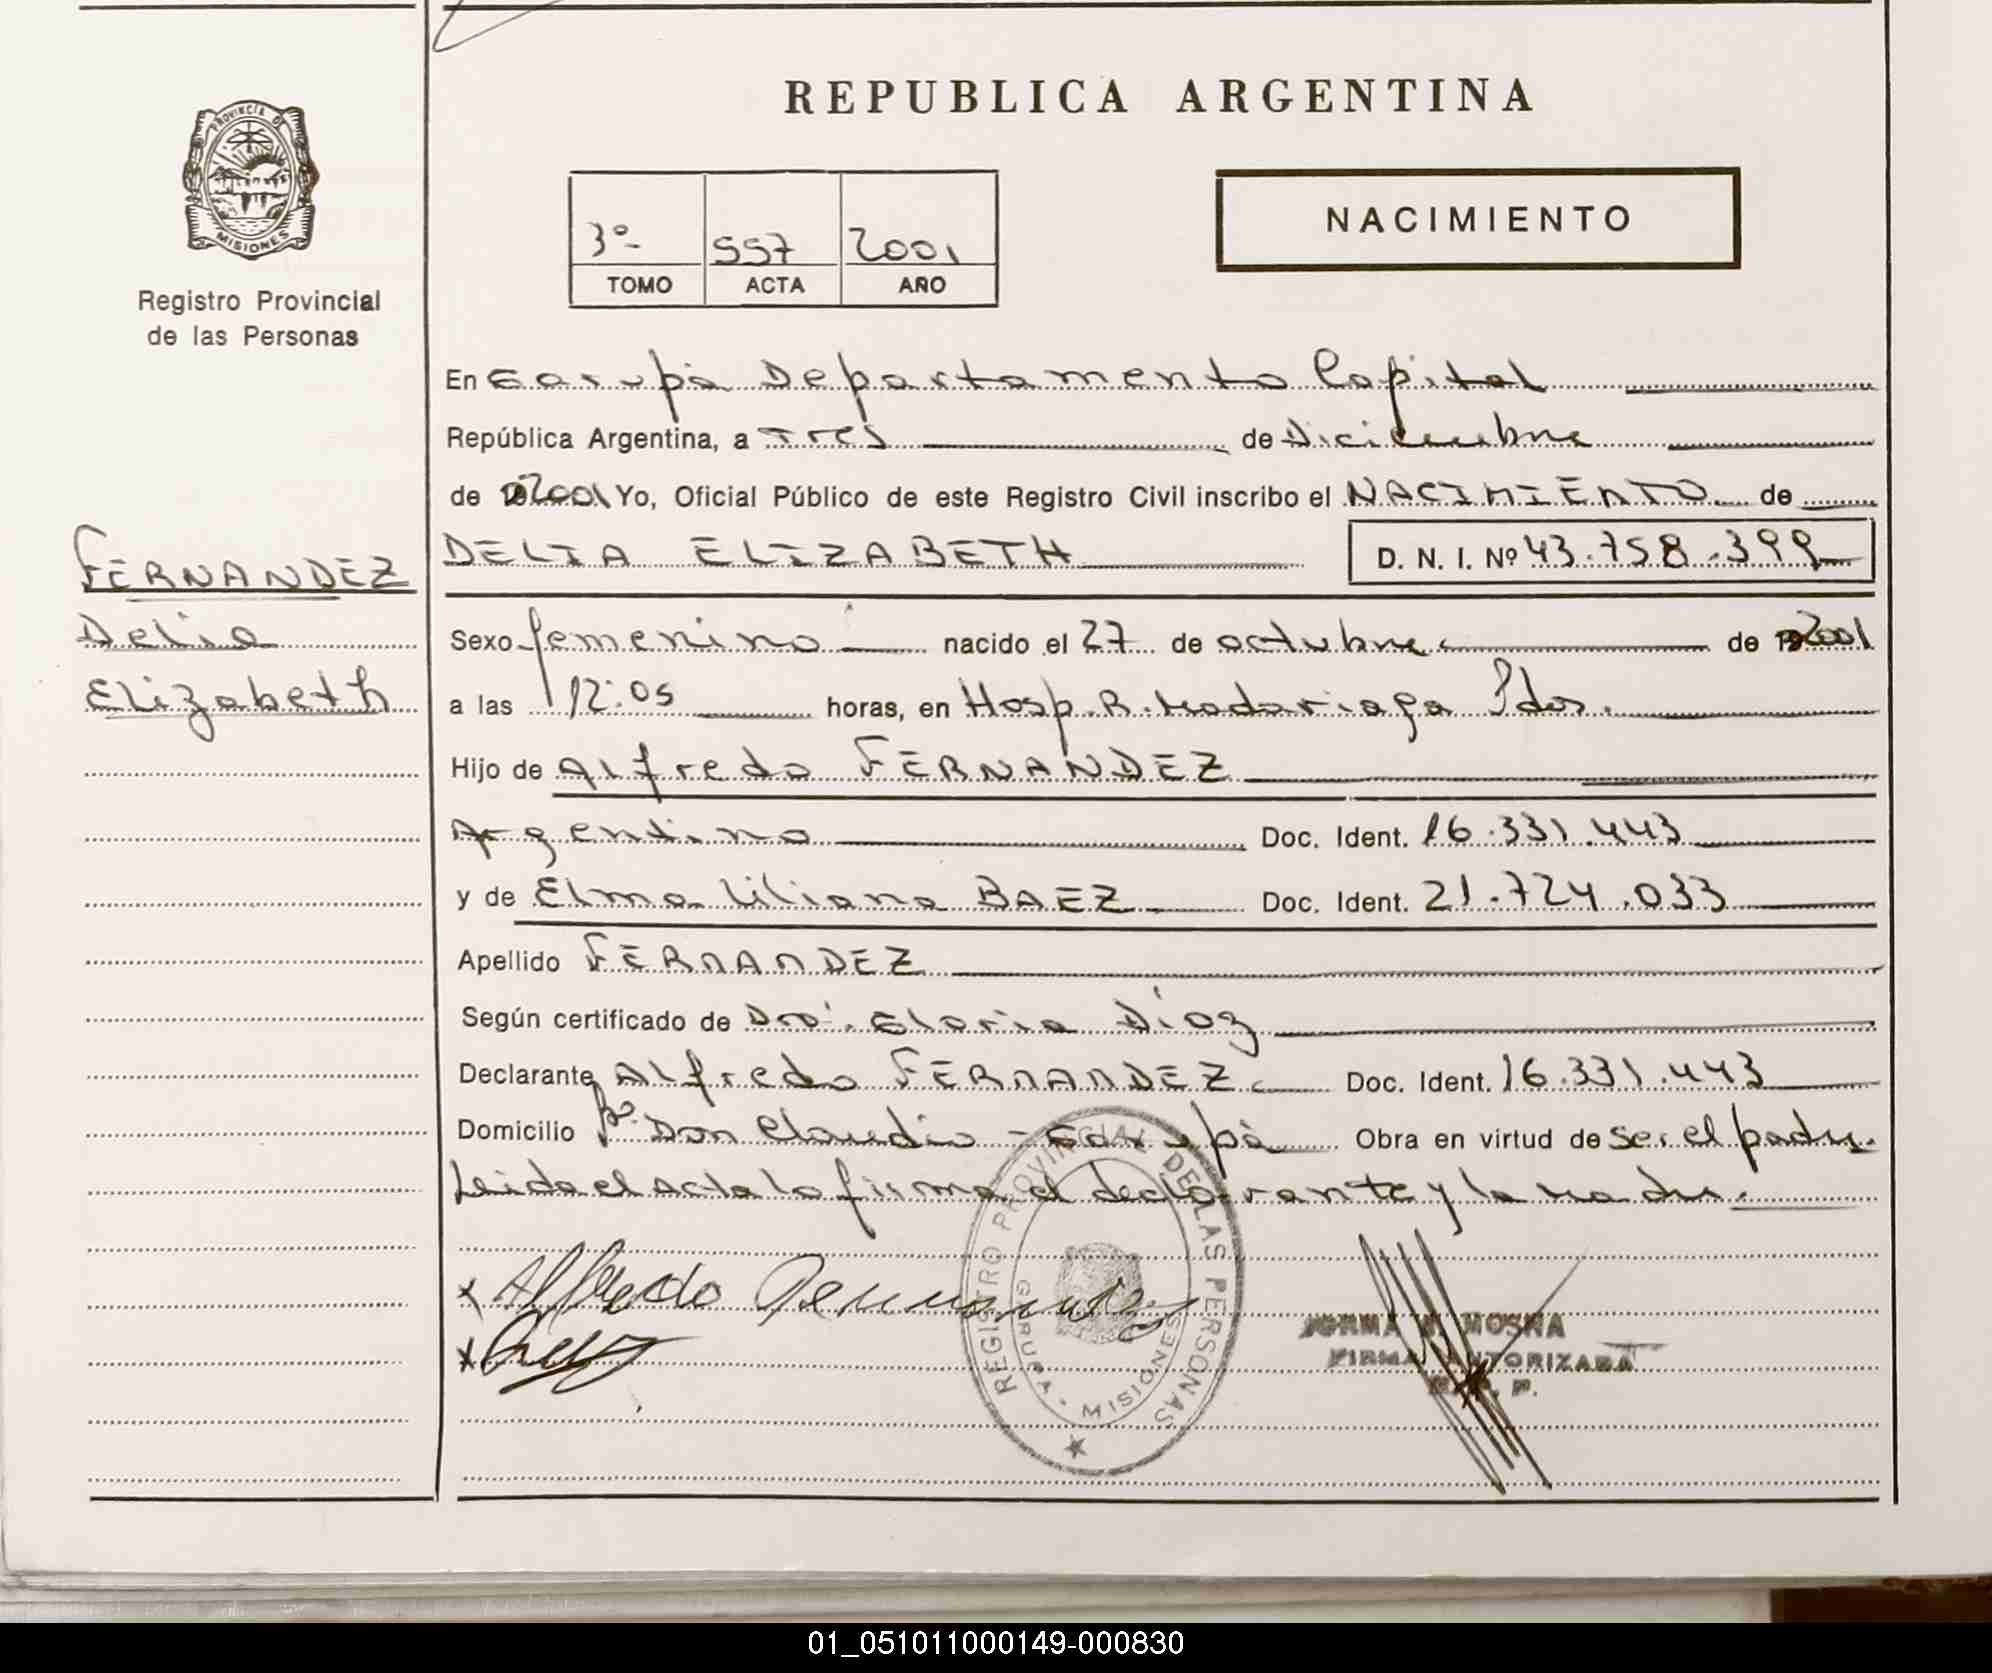 REPUBLICA ARGENTINA
PROVINCIA DE
MISIONES
Registro Provincial
de las Personas
3º 557 2001
TOMO ACTA AÑO
NACIMIENTO
En Garupá Departamento Capital
República Argentina, a Tres de Diciembre
de 2001 Yo, Oficial Público de este Registro Civil inscribo el NACIMIENTO de
DELIA ELIZABETH D. N. I. Nº 43.758.399
FERNANDEZ
Delia
Elizabeth
Sexo femenino nacido el 27 de octubre de 2001
a las 12:05 horas, en Hosp. R. Madariaga Pdas.
Hijo de Alfredo FERNANDEZ
Argentino Doc. Ident. 16.331.443
y de Elma Liliana BAEZ Doc. Ident. 21.724.033
Apellido FERNANDEZ
Según certificado de Dra. Gloria Díaz
Declarante Alfredo FERNANDEZ Doc. Ident. 16.331.443
Domicilio Bº Don Claudio - Garupá Obra en virtud de ser el padre.
Leida el acta la firma el declarante y la madre.
Alfredo Fernandez
Baez
REGISTRO PROVINCIAL DE LAS PERSONAS
GARUPA - MISIONES
MOSNA
FIRMA AUTORIZADA
01_051011000149-000830